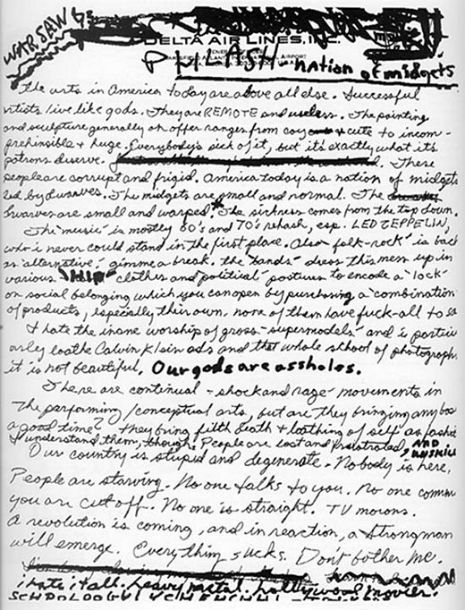 WARSAW
DELTA AIR LINES, INC.
AIRPORT
nation of midgets
The arts in America today are above all else. Successful
artists live like gods. They are REMOTE and useless. The painting
and sculpture generally on offer ranges from coy & cute to incom-
prehensible & huge. Everybody's sick of it, but it's exactly what its
patrons deserve. These
people are corrupt and frigid. America today is a nation of midgets
led by dwarves. The midgets are small and normal. The
dwarves are small and warped. The sickness comes from the top down.
The "music" is mostly 60's and 70's rehash, esp. LED ZEPPELIN,
who i never could stand in the first place. Also "folk-rock" is back
as "alternative", gimme a break. the "bands" dress this mess up in
various "HIP" clothes and "political" postures to encode a "lock"
on social belonging which you can open by purchasing a "combination"
of products, especially their own, none of them have fuck-all to
i hate the inane worship of gross "supermodels" and i particu
arly loathe Calvin Klein ads and that whole school of photograph
it is not beautiful. Our gods are assholes.
There are continual "shock and rage" movements in
the performing/conceptual arts, but are they bringing anybod
a good time? they bring filth death & loathing of self as fashio
i understand them, though. People are lost and frustrated AND
Our country is stupid and degenerate. Nobody is here,
People are starving. No one talks to you. No one comm
you are cut off. No one is straight. TV morons.
A revolution is coming, and in reaction, a strongman
will emerge. Everything sucks. Don't bother me.
i hate it all. heavy metal. hollywood movies.